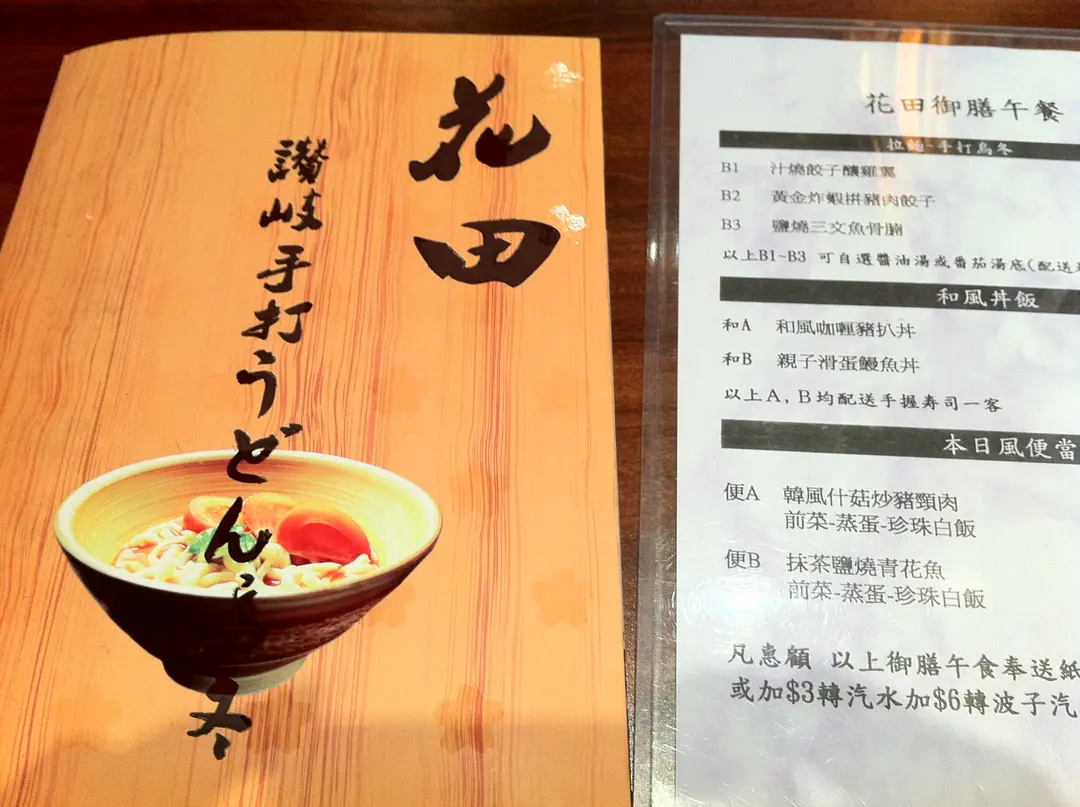 花田
讃岐手打うどん烏冬
花田御膳午餐
拉麵-手打烏冬
B1 汁燒餃子釀雞翼
B2 黃金炸蝦拼豬肉餃子
B3 鹽燒三文魚骨腩
以上B1~B3 可自選醬油湯或番茄湯底(配送
和風丼飯
和A 和風咖喱豬扒丼
和B 親子滑蛋鰻魚丼
以上A, B均配送手握寿司一客
本日風便當
便A 韓風什菇炒豬頸肉
前菜-蒸蛋-珍珠白飯
便B 抹茶鹽燒青花魚
前菜-蒸蛋-珍珠白飯
凡惠顧 以上御膳午食奉送紙
或加$3轉汽水加$6轉波子汽